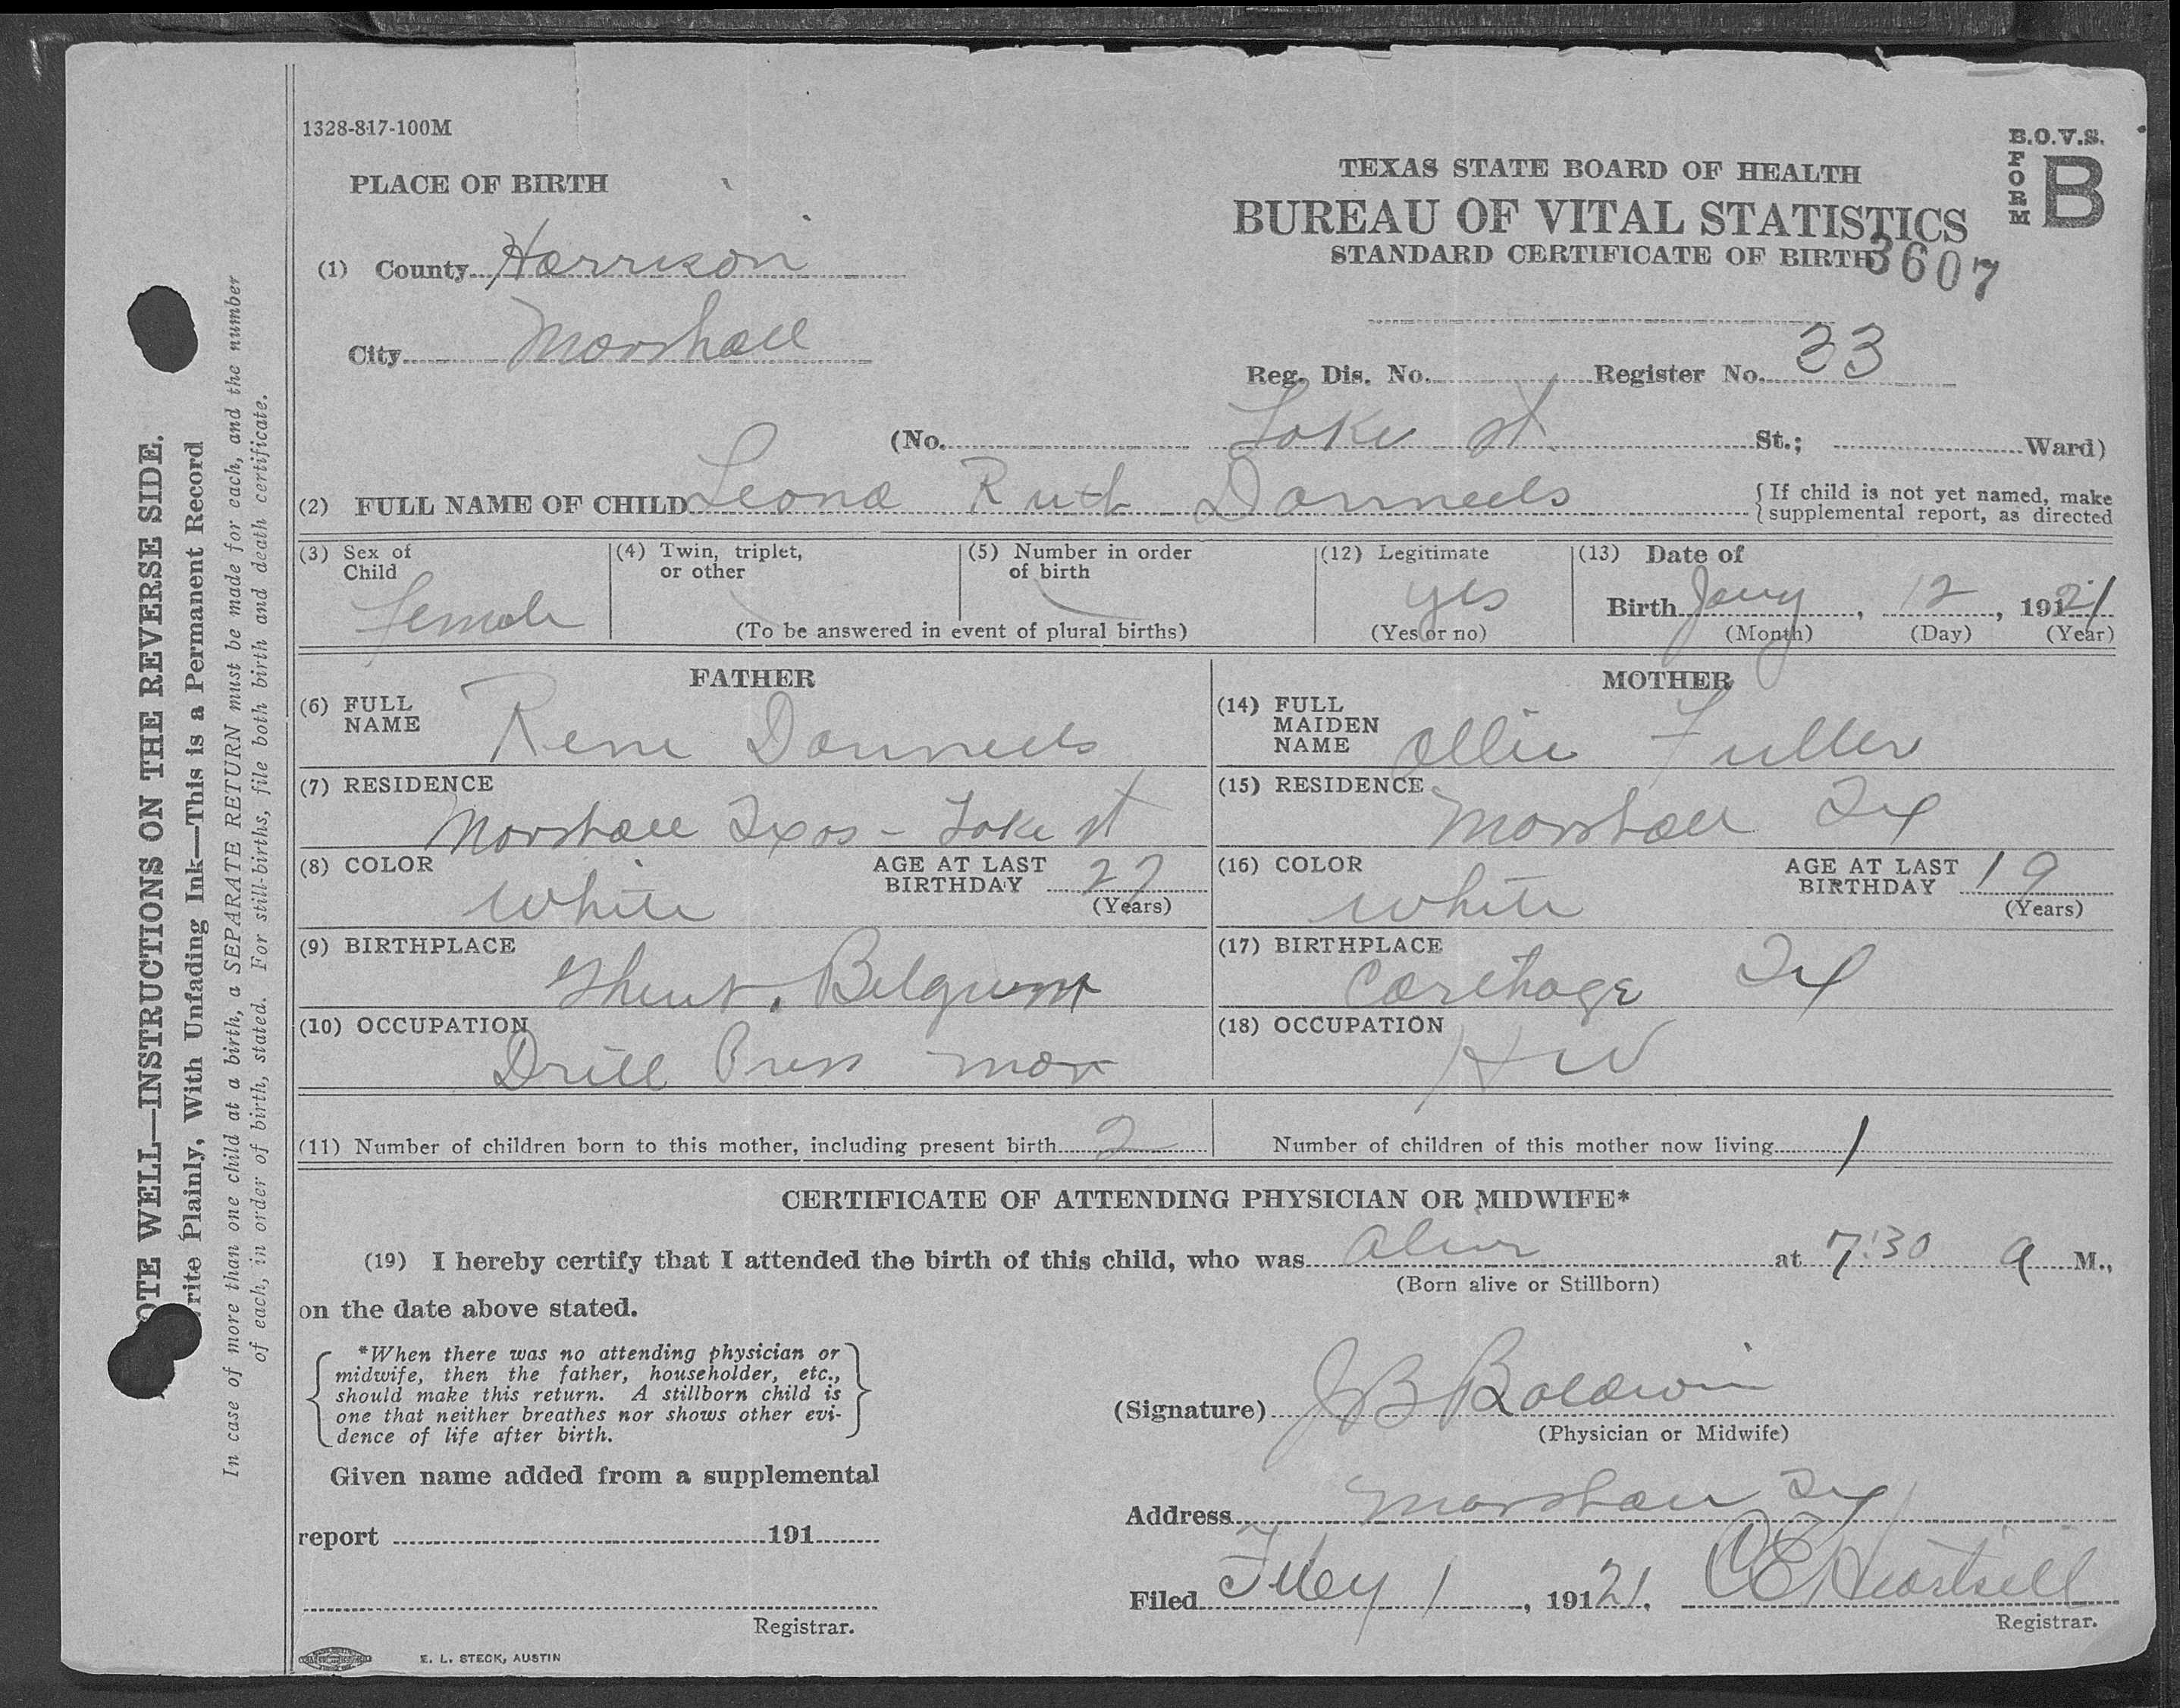 1328-817-100M
B.O.V.S.
FORM B
PLACE OF BIRTH
TEXAS STATE BOARD OF HEALTH
BUREAU OF VITAL STATISTICS
STANDARD CERTIFICATE OF BIRTH
3607
(1) County Harrison
City Marshall
Reg. Dis. No. Register No. 33
(No. Lake st St.; Ward)
(2) FULL NAME OF CHILD Leona Ruth Danneels
{If child is not yet named, make
supplemental report, as directed
(3) Sex of Child Female
(4) Twin, triplet, or other
(5) Number in order of birth
(To be answered in event of plural births)
(12) Legitimate yes
(Yes or no)
(13) Date of
Birth Jany, 12, 1921
(Month) (Day) (Year)
FATHER
(6) FULL NAME Rene Danneels
(7) RESIDENCE
Marshall Texas - Lake st
(8) COLOR White AGE AT LAST BIRTHDAY 27
(Years)
(9) BIRTHPLACE
Ghent, Belgium
(10) OCCUPATION
Drill Press man
MOTHER
(14) FULL MAIDEN NAME Ollie Fuller
(15) RESIDENCE
Marshall Tex
(16) COLOR White AGE AT LAST BIRTHDAY 19
(Years)
(17) BIRTHPLACE
Carthage Tex
(18) OCCUPATION
HW
(11) Number of children born to this mother, including present birth 2 Number of children of this mother now living 1
CERTIFICATE OF ATTENDING PHYSICIAN OR MIDWIFE*
(19) I hereby certify that I attended the birth of this child, who was alive at 7:30 a M.,
(Born alive or Stillborn)
on the date above stated.
*When there was no attending physician or
midwife, then the father, householder, etc.,
should make this return. A stillborn child is
one that neither breathes nor shows other evi-
dence of life after birth.
(Signature) JB Baldwin
(Physician or Midwife)
Given name added from a supplemental
report 191
Registrar.
Address Marshall, Tex
Filed Feby 1, 19121. CE Heartsill
Registrar.
E. L. STECK, AUSTIN
OTE WELL—INSTRUCTIONS ON THE REVERSE SIDE.
rite Plainly, With Unfading Ink—This is a Permanent Record
In case of more than one child at a birth, a SEPARATE RETURN must be made for each, and the number
of each, in order of birth, stated. For still-births, file both birth and death certificate.